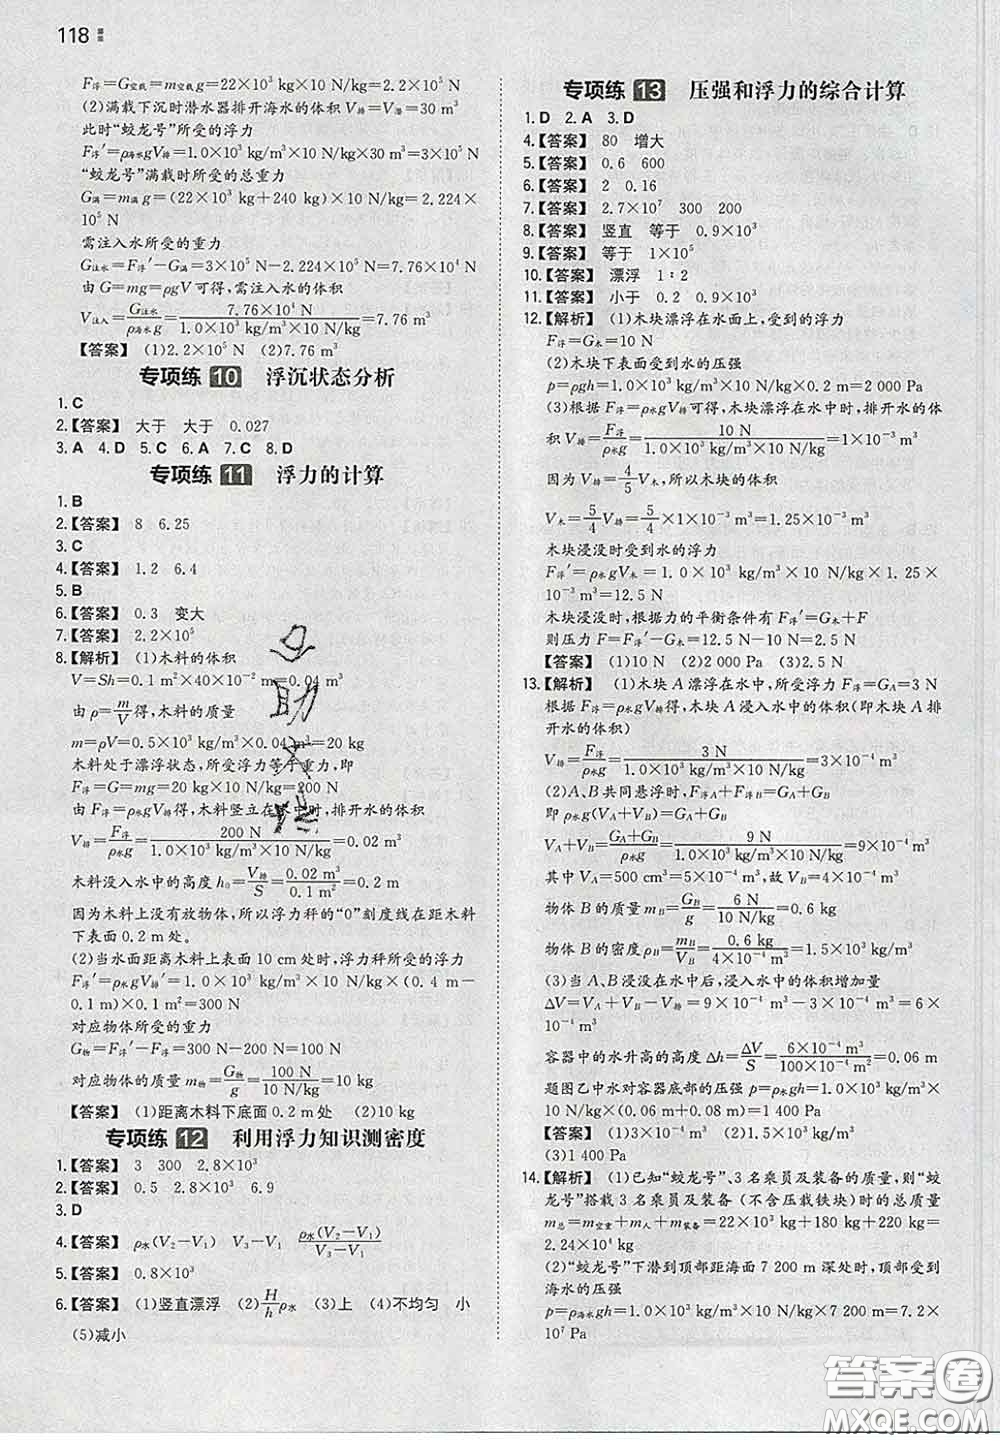 118
F浮=G空载=m空载g=22×10³ kg×10 N/kg=2.2×10⁵ N
(2)满载下沉时潜水器排开海水的体积 V排=V=30 m³
此时“蛟龙号”所受的浮力
F浮′=ρ海水gV排=1.0×10³ kg/m³×10 N/kg×30 m³=3×10⁵ N
“蛟龙号”满载时所受的总重力
G满=m满g=(22×10³ kg+240 kg)×10 N/kg=2.224×
10⁵ N
需注入水所受的重力
G注水=F浮′−G满=3×10⁵ N−2.224×10⁵ N=7.76×10⁴ N
由 G=mg=ρgV可得,需注入水的体积
V注入=G注水/ρ海水g=7.76×10⁴ N/(1.0×10³ kg/m³×10 N/kg)=7.76 m³
【答案】 (1)2.2×10⁵ N (2)7.76 m³
专项练 10 浮沉状态分析
1. C
2.【答案】 大于 大于 0.027
3. A 4. D 5. C 6. A 7. C 8. D
专项练 11 浮力的计算
1. B
2.【答案】 8 6.25
3. C
4.【答案】 1.2 6.4
5. B
6.【答案】 0.3 变大
7.【答案】 2.2×10⁵
8.【解析】 (1)木料的体积
V=Sh=0.1 m²×40×10⁻² m=0.04 m³
由 ρ=m/V得,木料的质量
m=ρV=0.5×10³ kg/m³×0.04 m³=20 kg
木料处于漂浮状态,所受浮力等于重力,即
F浮=G=mg=20 kg×10 N/kg=200 N
由 F浮=ρ水gV排得,木料竖立在水中时,排开水的体积
V排=F浮/ρ水g=200 N/(1.0×10³ kg/m³×10 N/kg)=0.02 m³
木料没入水中的高度 h₀=V排/S=0.02 m³/0.1 m²=0.2 m
因为木料上没有放物体,所以浮力秤的“0”刻度线在距木料
下表面 0.2 m 处。
(2)当水面距离木料上表面 10 cm 处时,浮力秤所受的浮力
F浮′=ρ水gV排′=1.0×10³ kg/m³×10 N/kg×(0.4 m−
0.1 m)×0.1 m²=300 N
对应物体所受的重力
G物=F浮′−F浮=300 N−200 N=100 N
对应物体的质量 m物=G物/g=100 N/10 N/kg=10 kg
【答案】 (1)距离木料下底面 0.2 m 处 (2)10 kg
专项练 12 利用浮力知识测密度
1.【答案】 3 300 2.8×10³
2.【答案】 0.5 2.8×10³ 6.9
3. D
4.【答案】 ρ水(V₂−V₁) V₃−V₁ ρ水(V₂−V₁)/(V₃−V₁)
5.【答案】 0.8×10³
6.【答案】 (1)竖直漂浮 (2)H/h ρ水 (3)上 (4)不均匀 小
(5)减小
专项练 13 压强和浮力的综合计算
1. D 2. A 3. D
4.【答案】 80 增大
5.【答案】 0.6 600
6.【答案】 2 0.16
7.【答案】 2.7×10⁷ 300 200
8.【答案】 竖直 等于 0.9×10³
9.【答案】 等于 1×10⁵
10.【答案】 漂浮 1∶2
11.【答案】 小于 0.2 0.9×10³
12.【解析】 (1)木块漂浮在水面上,受到的浮力
F浮=G木=10 N
(2)木块下表面受到水的压强
p=ρgh=1.0×10³ kg/m³×10 N/kg×0.2 m=2 000 Pa
(3)根据 F浮=ρ水gV排可得,木块漂浮在水中时,排开水的体
积 V排=F浮/ρ水g=10 N/(1.0×10³ kg/m³×10 N/kg)=1×10⁻³ m³
因为 V排=4/5V木,所以木块的体积
V木=5/4V排=5/4×1×10⁻³ m³=1.25×10⁻³ m³
木块浸没时受到水的浮力
F浮′=ρ水gV木=1.0×10³ kg/m³×10 N/kg×1.25×
10⁻³ m³=12.5 N
木块浸没时,根据力的平衡条件有 F浮′=G木+F
则压力 F=F浮′−G木=12.5 N−10 N=2.5 N
【答案】 (1)10 N (2)2 000 Pa (3)2.5 N
13.【解析】 (1)木块 A 漂浮在水中,所受浮力 F浮=GA=3 N
根据 F浮=ρ水gV排得,木块 A 浸入水中的体积(即木块 A 排
开水的体积)
V排=F浮/ρ水g=3 N/(1.0×10³ kg/m³×10 N/kg)=3×10⁻⁴ m³
(2)A、B 共同悬浮时,F浮A+F浮B=GA+GB
即 ρ水g(VA+VB)=GA+GB
VA+VB=(GA+GB)/ρ水g=9 N/(1.0×10³ kg/m³×10 N/kg)=9×10⁻⁴ m³
其中 VA=500 cm³=5×10⁻⁴ m³,故 VB=4×10⁻⁴ m³
物体 B 的质量 mB=GB/g=6 N/10 N/kg=0.6 kg
物体 B 的密度 ρB=mB/VB=0.6 kg/4×10⁻⁴ m³=1.5×10³ kg/m³
(3)当 A、B 浸没在水中后,浸入水中的体积增加量
ΔV=VA+VB−V排=9×10⁻⁴ m³−3×10⁻⁴ m³=6×
10⁻⁴ m³
容器中的水升高的高度 Δh=ΔV/S=6×10⁻⁴ m³/10⁻² m²=0.06 m
题图乙中水对容器底部的压强 p=ρ水gh=1.0×10³ kg/m³
×10 N/kg×(0.06 m+0.08 m)=1 400 Pa
【答案】 (1)3×10⁻⁴ m³ (2)1.5×10³ kg/m³
(3)1 400 Pa
14.【解析】 (1)已知“蛟龙号”、3 名乘员及装备的质量,则“蛟
龙号”搭载 3 名乘员及装备(不含压载铁块)时的总质量
m总=m空重+m人+m装备=22×10³ kg+180 kg+220 kg=
2.24×10⁴ kg
(2)“蛟龙号”下潜到顶部距海面 7 200 m 深处时,顶部受到
海水的压强
p=ρ海水gh=1.0×10³ kg/m³×10 N/kg×7 200 m=7.2×
10⁷ Pa
答案卷
MXQE.COM